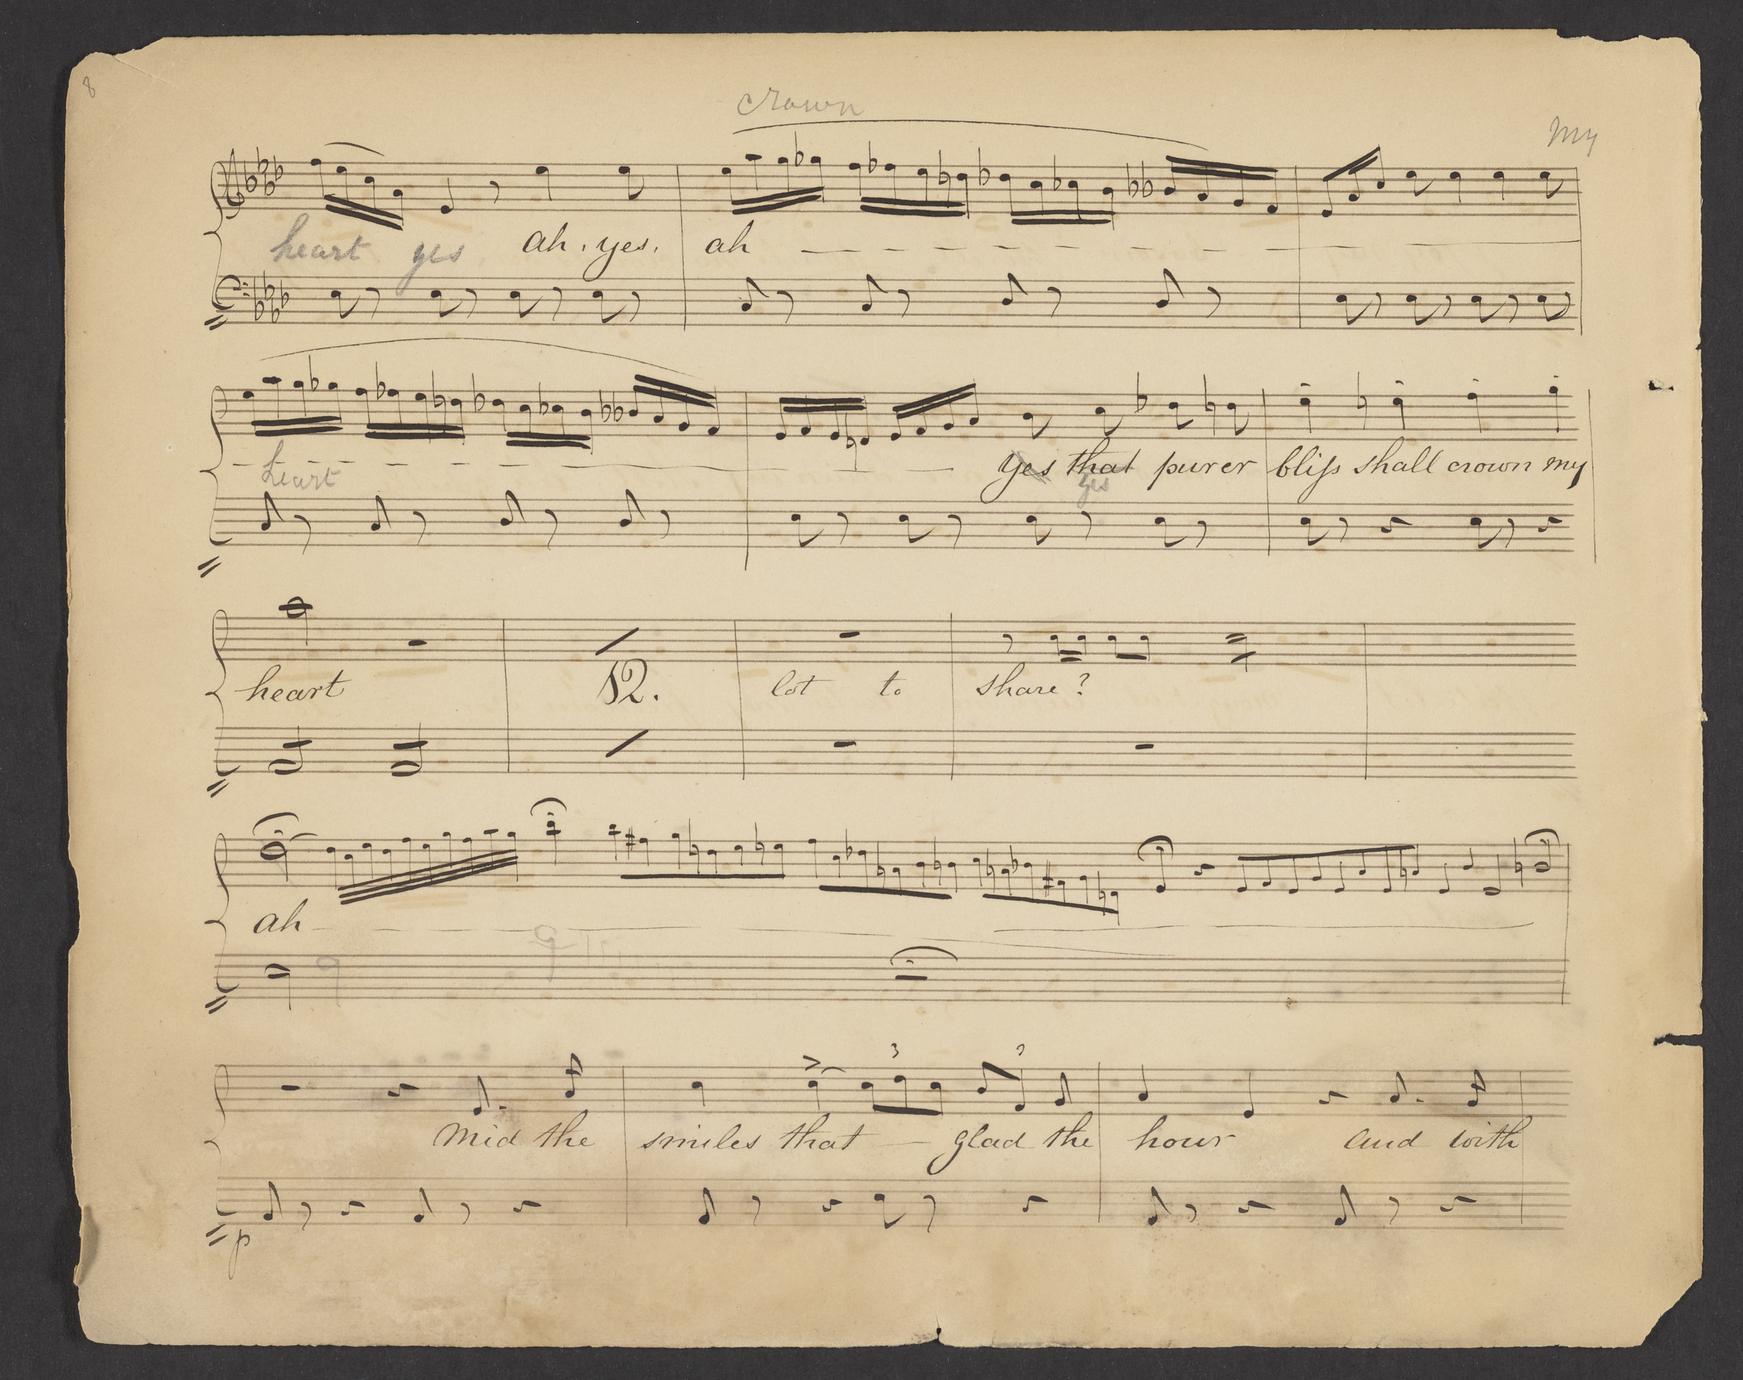 8
crown
My
heart yes ah. yes. ah
heart
yes that purer bliſs shall crown my
yes
heart 12. lot to share?
ah
3 3
Mid the smiles that glad the hour and with
p